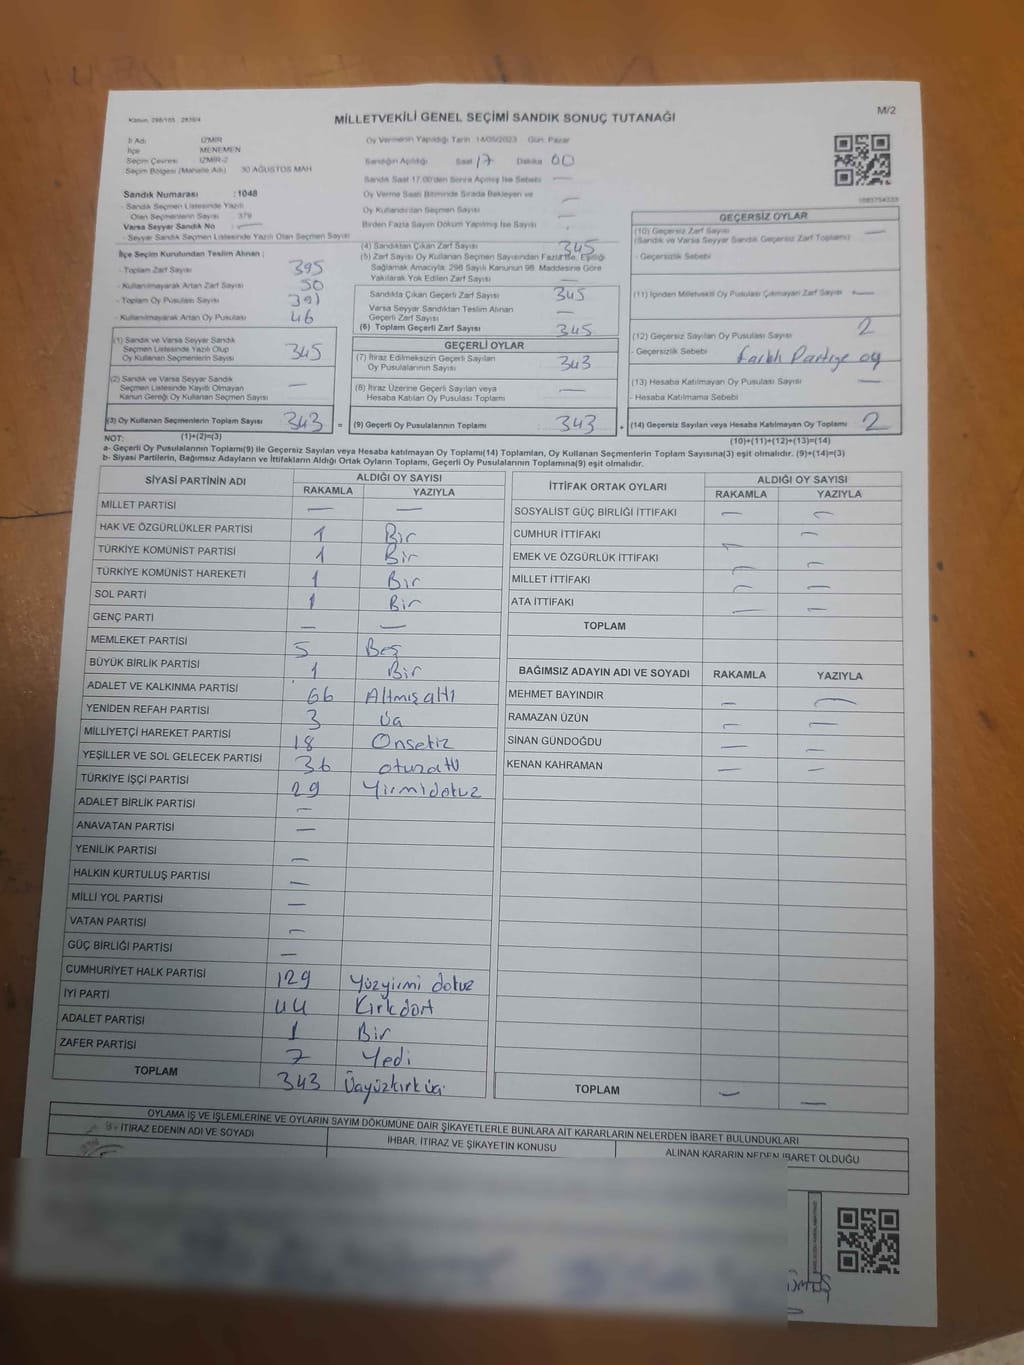 Kanun: 298/105 : 2839/4
MİLLETVEKİLİ GENEL SEÇİMİ SANDIK SONUÇ TUTANAĞI
M/2
İl Adı : İZMİR
İlçe : MENEMEN
Seçim Çevresi : İZMİR-2
Seçim Bölgesi (Mahalle Adı) 30 AĞUSTOS MAH
Oy Vermenin Yapıldığı Tarih 14/05/2023 Gün: Pazar
Sandığın Açıldığı Saat 17 Dakika 00
Sandık Saat 17.00'den Sonra Açılmış İse Sebebi —
Oy Verme Saati Bitiminde Sırada Bekleyen ve
Oy Kullandırılan Seçmen Sayısı —
Birden Fazla Sayım Döküm Yapılmış İse Sayısı —
Sandık Numarası : 1048
- Sandık Seçmen Listesinde Yazılı
Olan Seçmenlerin Sayısı : 379
Varsa Seyyar Sandık No —
- Seyyar Sandık Seçmen Listesinde Yazılı Olan Seçmen Sayısı
İlçe Seçim Kurulundan Teslim Alınan ;
- Toplam Zarf Sayısı 395
- Kullanılmayarak Artan Zarf Sayısı 50
- Toplam Oy Pusulası Sayısı 391
- Kullanılmayarak Artan Oy Pusulası 46
(1) Sandık ve Varsa Seyyar Sandık
Seçmen Listesinde Yazılı Olup
Oy Kullanan Seçmenlerin Sayısı 345
(2) Sandık ve Varsa Seyyar Sandık
Seçmen Listesinde Kayıtlı Olmayan
Kanun Gereği Oy Kullanan Seçmen Sayısı —
(3) Oy Kullanan Seçmenlerin Toplam Sayısı 343 =
(1)+(2)=(3)
(4) Sandıktan Çıkan Zarf Sayısı 345
(5) Zarf Sayısı Oy Kullanan Seçmen Sayısından Fazla İse, Eşitliği
Sağlamak Amacıyla; 298 Sayılı Kanunun 98. Maddesine Göre
Yakılarak Yok Edilen Zarf Sayısı —
Sandıkta Çıkan Geçerli Zarf Sayısı 345
Varsa Seyyar Sandıktan Teslim Alınan
Geçerli Zarf Sayısı —
(6) Toplam Geçerli Zarf Sayısı 345
GEÇERLİ OYLAR
(7) İtiraz Edilmeksizin Geçerli Sayılan
Oy Pusulalarının Sayısı 343
(8) İtiraz Üzerine Geçerli Sayılan veya
Hesaba Katılan Oy Pusulası Toplamı —
(9) Geçerli Oy Pusulalarının Toplamı 343 +
GEÇERSİZ OYLAR
(10) Geçersiz Zarf Sayısı —
(Sandık ve Varsa Seyyar Sandık Geçersiz Zarf Toplamı)
- Geçersizlik Sebebi
(11) İçinden Milletvekili Oy Pusulası Çıkmayan Zarf Sayısı —
(12) Geçersiz Sayılan Oy Pusulası Sayısı 2
- Geçersizlik Sebebi farklı Partiye oy
(13) Hesaba Katılmayan Oy Pusulası Sayısı —
- Hesaba Katılmama Sebebi
(14) Geçersiz Sayılan veya Hesaba Katılmayan Oy Toplamı 2
(10)+(11)+(12)+(13)=(14)
NOT:
a- Geçerli Oy Pusulalarının Toplamı(9) ile Geçersiz Sayılan veya Hesaba Katılmayan Oy Toplamı(14) Toplamları, Oy Kullanan Seçmenlerin Toplam Sayısına(3) eşit olmalıdır. (9)+(14)=(3)
b- Siyasi Partilerin, Bağımsız Adayların ve İttifakların Aldığı Ortak Oyların Toplamı, Geçerli Oy Pusulalarının Toplamına(9) eşit olmalıdır.
SİYASİ PARTİNİN ADI ALDIĞI OY SAYISI
RAKAMLA YAZIYLA
MİLLET PARTİSİ — —
HAK VE ÖZGÜRLÜKLER PARTİSİ 1 Bir
TÜRKİYE KOMÜNİST PARTİSİ 1 Bir
TÜRKİYE KOMÜNİST HAREKETİ 1 Bir
SOL PARTİ 1 Bir
GENÇ PARTİ — —
MEMLEKET PARTİSİ 5 Beş
BÜYÜK BİRLİK PARTİSİ 1 Bir
ADALET VE KALKINMA PARTİSİ 66 Altmışaltı
YENİDEN REFAH PARTİSİ 3 Üç
MİLLİYETÇİ HAREKET PARTİSİ 18 Onsekiz
YEŞİLLER VE SOL GELECEK PARTİSİ 36 otuzaltı
TÜRKİYE İŞÇİ PARTİSİ 29 Yirmidokuz
ADALET BİRLİK PARTİSİ —
ANAVATAN PARTİSİ —
YENİLİK PARTİSİ —
HALKIN KURTULUŞ PARTİSİ —
MİLLİ YOL PARTİSİ —
VATAN PARTİSİ —
GÜÇ BİRLİĞİ PARTİSİ —
CUMHURİYET HALK PARTİSİ 129 Yüzyirmi dokuz
İYİ PARTİ 44 Kırkdört
ADALET PARTİSİ 1 Bir
ZAFER PARTİSİ 7 Yedi
TOPLAM 343 Üçyüzkırküç
İTTİFAK ORTAK OYLARI ALDIĞI OY SAYISI
RAKAMLA YAZIYLA
SOSYALİST GÜÇ BİRLİĞİ İTTİFAKI — —
CUMHUR İTTİFAKI — —
EMEK VE ÖZGÜRLÜK İTTİFAKI — —
MİLLET İTTİFAKI — —
ATA İTTİFAKI — —
TOPLAM
BAĞIMSIZ ADAYIN ADI VE SOYADI RAKAMLA YAZIYLA
MEHMET BAYINDIR — —
RAMAZAN ÜZÜN — —
SİNAN GÜNDOĞDU — —
KENAN KAHRAMAN — —
TOPLAM — —
OYLAMA İŞ VE İŞLEMLERİNE VE OYLARIN SAYIM DÖKÜMÜNE DAİR ŞİKAYETLERLE BUNLARA AİT KARARLARIN NELERDEN İBARET BULUNDUKLARI
İTİRAZ EDENİN ADI VE SOYADI
İHBAR, İTİRAZ VE ŞİKAYETİN KONUSU
ALINAN KARARIN NEDEN İBARET OLDUĞU